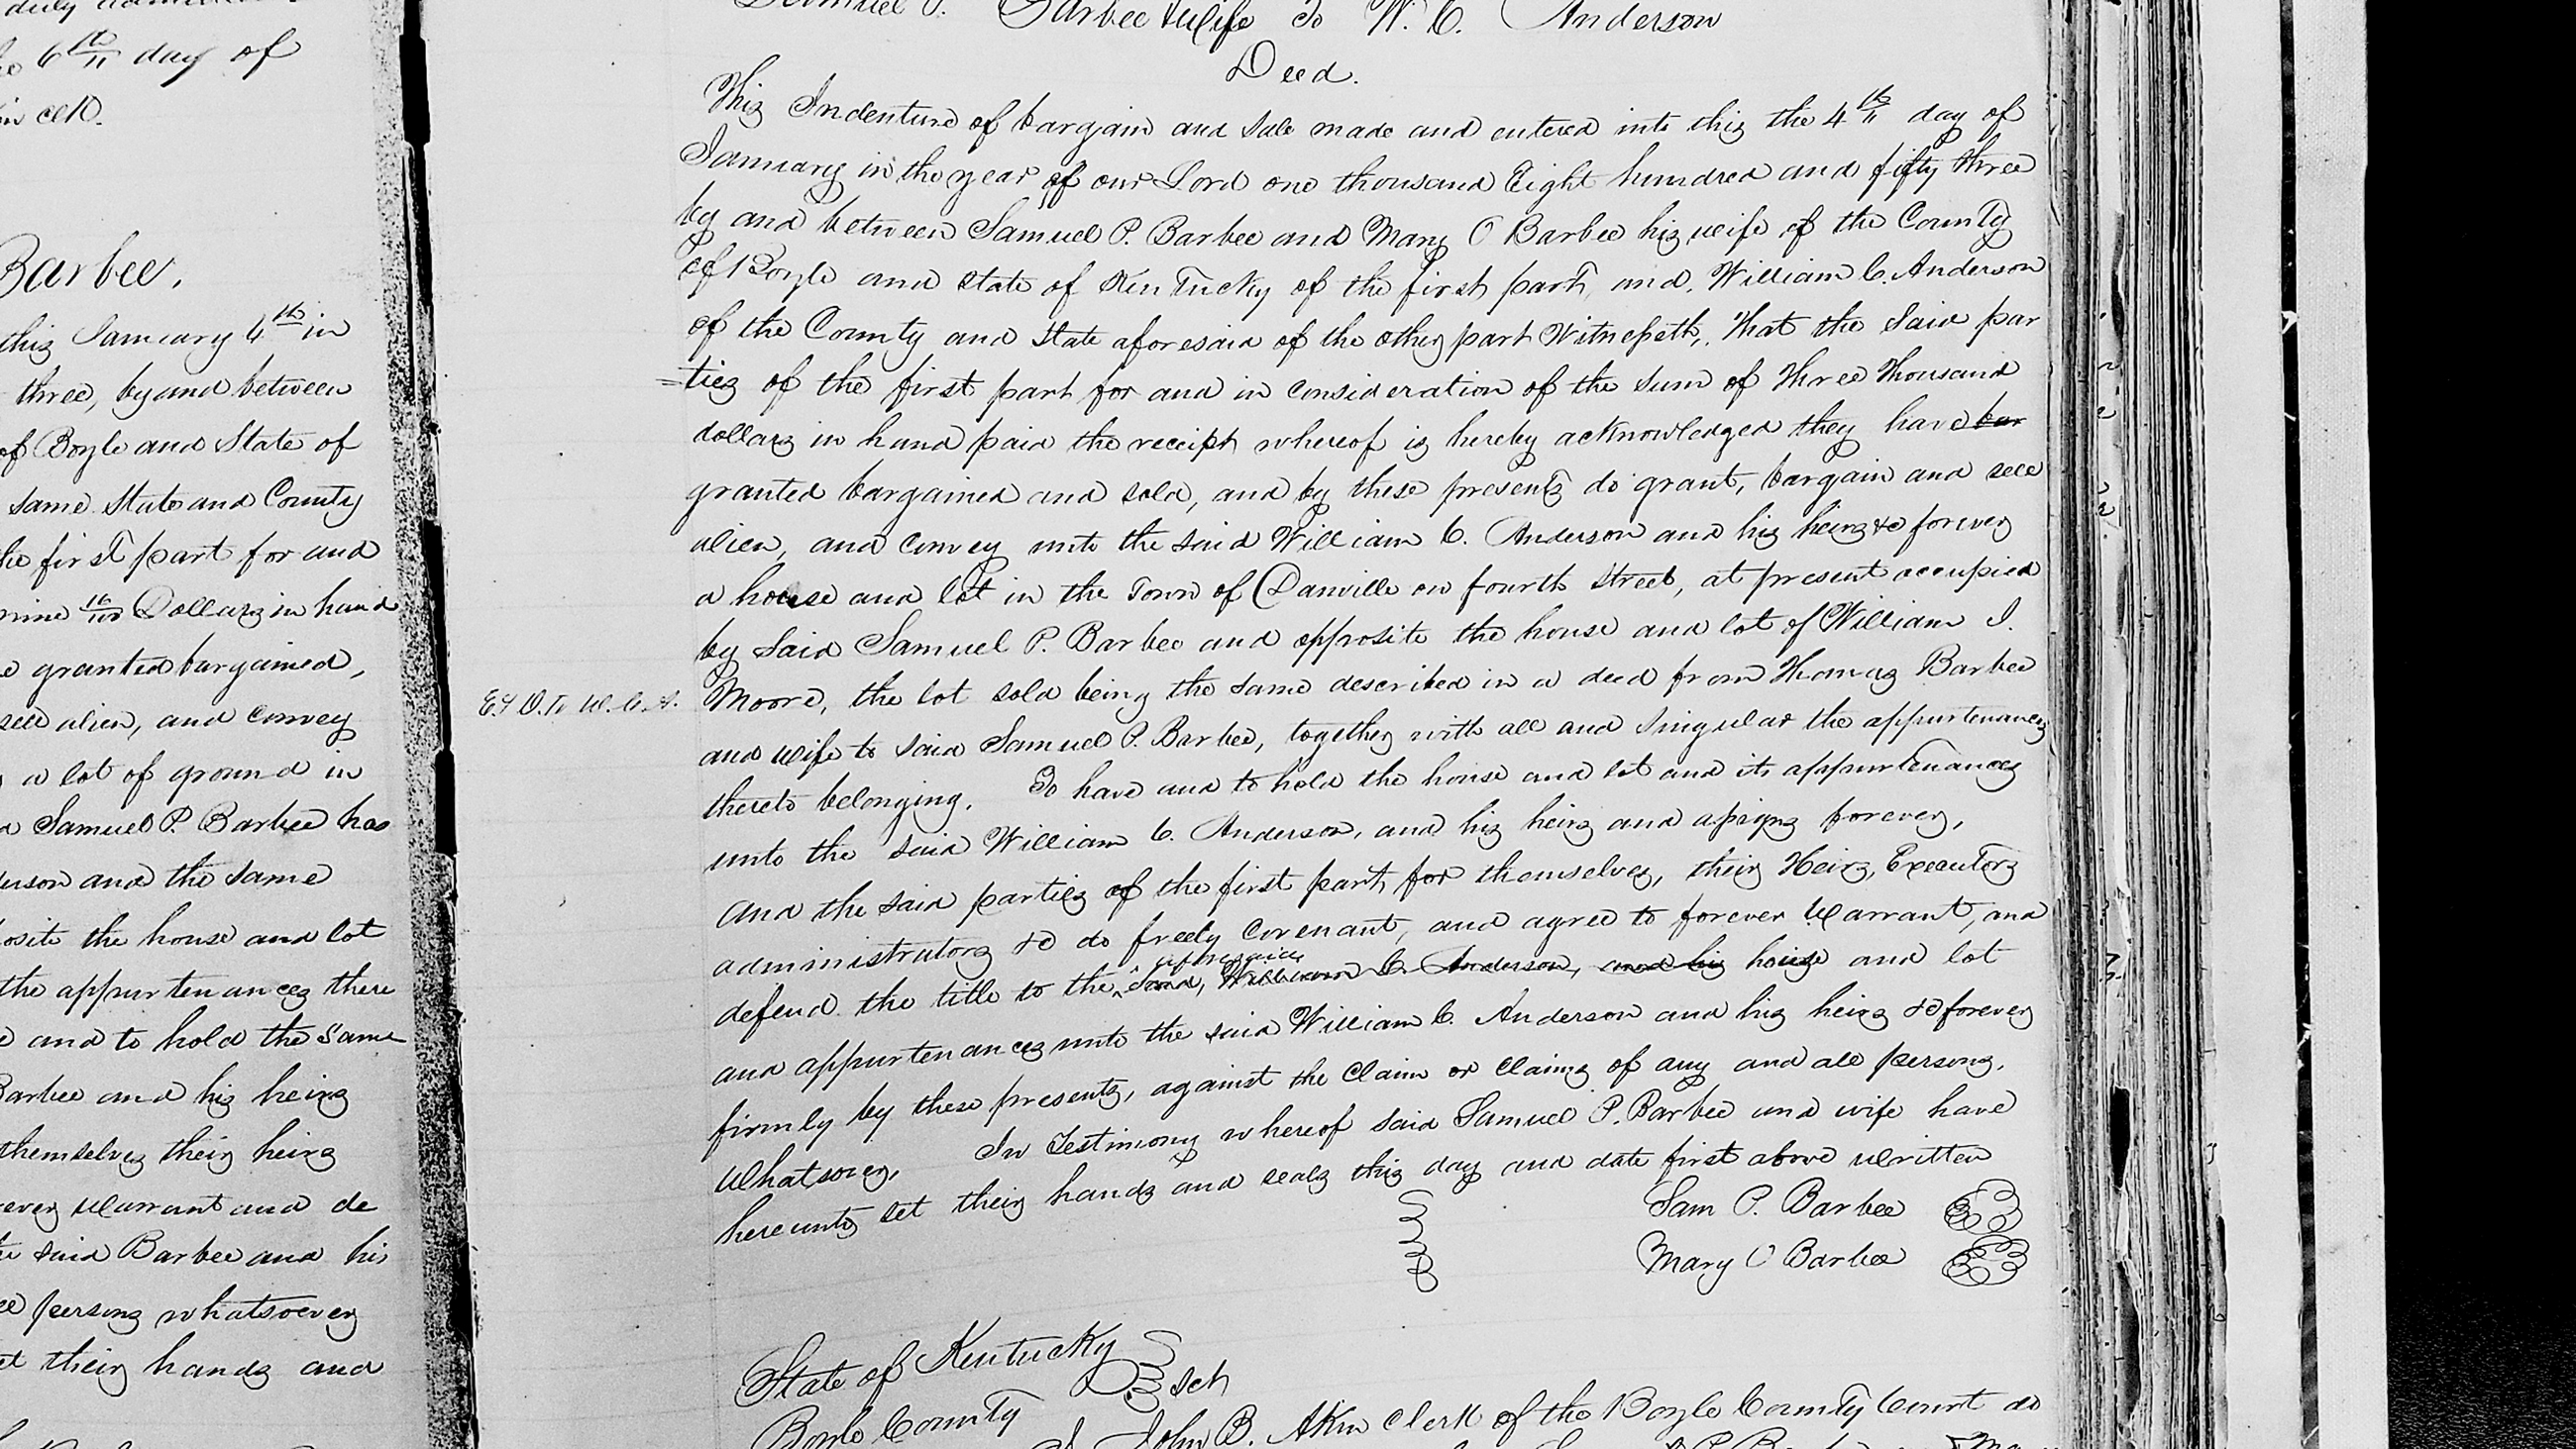 duly
the 6th day of
in clk.
Barbee.
this January 4th in
three, by and between
of Boyle and State of
same State and County
the first part for and
nine 16/100 Dollars in hand
granted bargained,
sell alien, and convey
a lot of ground in
Samuel P. Barbee has
derson and the same
posite the house and lot
the appurtenances there
and to hold the same
Barbee and his heirs
themselves their heirs
ever Warrant and de
said Barbee and his
persons whatsoever
set their hands and
Samuel P. Barbee & wife To W. C. Anderson
Deed.
This Indenture of bargain and sale made and entered into this the 4th day of
January in the year of our Lord one thousand Eight hundred and fifty three
by and between Samuel P. Barbee and Mary O Barbee his wife of the County
of Boyle and State of Kentucky of the first part, and William C. Anderson
of the County and State aforesaid of the other part Witnesseth, That the said par
=ties of the first part for and in consideration of the sum of Three Thousand
dollars in hand paid the receipt whereof is hereby acknowledged they have bar
granted bargained and sold, and by these presents do grant, bargain and sell
alien, and convey unto the said William C. Anderson and his heirs &c forever
a house and lot in the Town of Danville on fourth Street, at present occupied
by said Samuel P. Barbee and opposite the house and lot of William I.
E&D. To W. C. A. Moore, the lot sold being the same described in a deed from Thomas Barbee
and wife to said Samuel P. Barbee, together with all and singular the appurtenances
thereto belonging. To have and to hold the house and lot and its appurtenances
unto the said William C. Anderson, and his heirs and assigns forever,
And the said parties of the first part, for themselves, their Heirs, Executors
administrators &c do freely covenant, and agree to forever Warrant, and
defend the title to the aforesaid said, William C. Anderson, and his house and lot
and appurtenances unto the said William C. Anderson and his heirs &c forever
firmly by these presents, against the claim or claims of any and all persons,
Whatsoever, In Testimony whereof said Samuel P. Barbee and wife have
hereunto set their hands and seals this day and date first above written
Sam P. Barbee
Mary O Barbee
State of Kentucky
Boyle County Sct
I John B. Akin Clerk of the Boyle County Court do